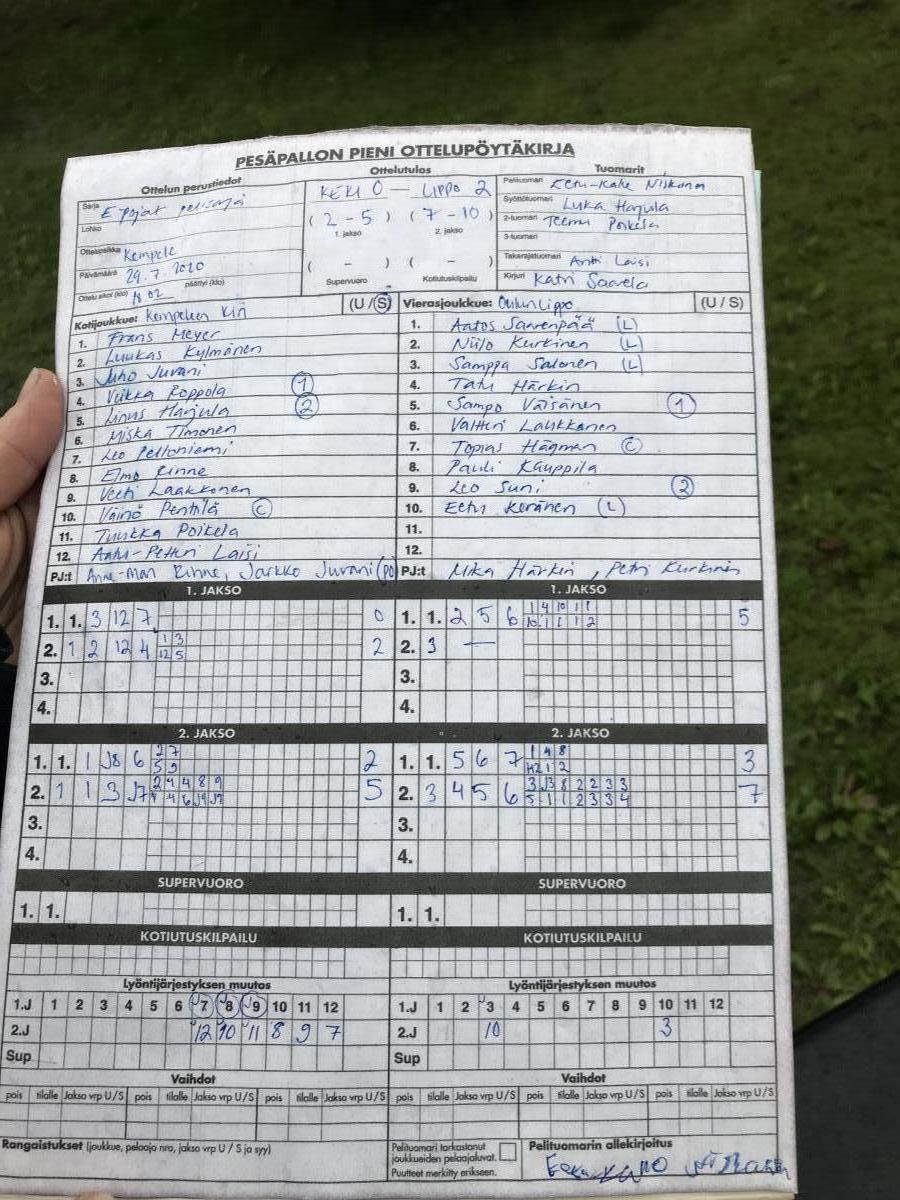 PESÄPALLON PIENI OTTELUPÖYTÄKIRJA
Ottelun perustiedot
Ottelutulos
Tuomarit
Sarja E pojat
Lohko
Ottelupaikka Kempele
Päivämäärä 29.7.2020
Ottelu alkoi (klo) 18 02 päättyi (klo)
KEKI 0 — LIPPO 2
(2 - 5) (7 - 10)
1. jakso 2. jakso
( - ) ( - )
Supervuoro Kotiutuskilpailu
Pelituomari Eetu-Kalle
Syöttötuomari Luka Harjula
2-tuomari Teemu Poikela
3-tuomari
Takarajatuomari Antti Laisi
Kirjuri Katri Saarela
Kotijoukkue: Kempeleen Kiri (U / S)
1. Frans Meyer
2. Luukas Kylmänen
3. Juho Juvani
4. Veikka Roppola 1
5. Linus Harjula 2
6. Miska Timonen
7. Leo Peltoniemi
8. Elmo Rinne
9. Veeti Laakkonen
10. Väinö Penttilä C
11. Tuukka Poikela
12. Aatu-Petteri Laisi
PJ:t Anne-Mari Rinne, Jarkko Juvani (PO)
Vierasjoukkue: Oulun Lippo (U / S)
1. Aatos Saarenpää (L)
2. Niilo Kurkinen (L)
3. Samppa Salonen (L)
4. Tatu Härkin
5. Sampo Väisänen 1
6. Valtteri Laukkanen
7. Topias Hägman C
8. Pauli Kauppila
9. Leo Suni 2
10. Eetu Keränen (L)
11.
12.
PJ:t Mika Härkin, Petri Kurkinen
1. JAKSO
1. 1. 3 12 7 0
2. 1 2 12 4 1 3 2
12 5
3.
4.
1. JAKSO
1. 1. 2 5 6 1 4 10 1 1 5
10 1 1 1 2
2. 3 —
3.
4.
2. JAKSO
1. 1. 1 J8 6 2 7 2
5 9
2. 1 1 3 J7 2 4 4 8 9 5
3.
4.
2. JAKSO
1. 1. 5 6 7 1 4 8 3
2. 3 4 5 6 3 J3 8 2 2 3 3 7
5 1 1 2 3 3 4
3.
4.
SUPERVUORO
1. 1.
SUPERVUORO
1. 1.
KOTIUTUSKILPAILU
KOTIUTUSKILPAILU
Lyöntijärjestyksen muutos
1.J 1 2 3 4 5 6 7 8 9 10 11 12
2.J 12 10 11 8 9 7
Sup
Lyöntijärjestyksen muutos
1.J 1 2 3 4 5 6 7 8 9 10 11 12
2.J 10 3
Sup
Vaihdot
pois tilalle Jakso vrp U / S pois tilalle Jakso vrp U / S pois tilalle Jakso vrp U / S
Vaihdot
pois tilalle Jakso vrp U / S pois tilalle Jakso vrp U / S pois tilalle Jakso vrp U / S
Rangaistukset (joukkue, pelaaja nro, jakso vrp U / S ja syy)
Pelituomari tarkastanut
joukkueiden pelaajaluvat.
Puutteet merkitty erikseen.
Pelituomarin allekirjoitus